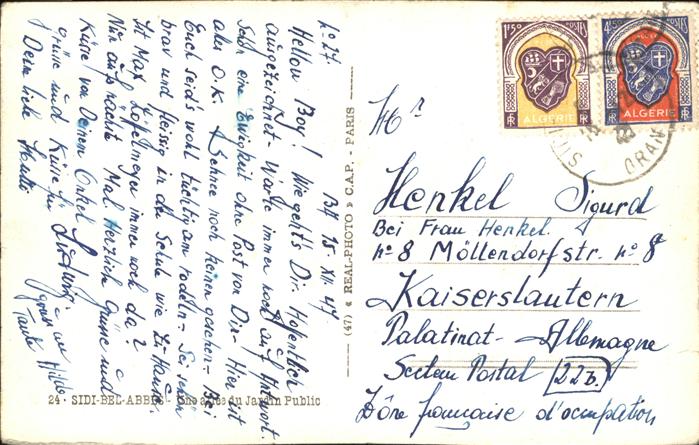 No 27. BA 15. XII. 47
Hellow Boy! Wie geht's Dir. Hoffentlich
ausgezeichnet. Warte immer noch auf Antwort.
Schon eine Ewigkeit ohne Post von Dir. Hier ist
alles O.K. Schnee noch keinen gesehen. Bei
Euch seid's wohl tüchtig am rodeln. Sei schön
brav und fleissig in der Schule wie zu Hause.
Ist Max immer noch da?
Nun aufs nächste Mal Herzliche Grüsse und
Küsse von Deinem Onkel Ludwig.
Grüsse und Küsse für
Deine liebe Mutti
Tante Hilde.
24 - SIDI-BEL-ABBÈS - Une allée du Jardin Public
(47) « REAL-PHOTO » C.A.P. - PARIS
1F50 POSTES
RF ALGERIE RF
4F50 POSTES
RF ALGERIE RF
ORAN
Mr
Henkel Sigurd
Bei Frau Henkel.
No 8 Möllendorfstr. No 8
Kaiserslautern
Palatinat - Allemagne
Secteur Postal 22b.
Zône française d'occupation